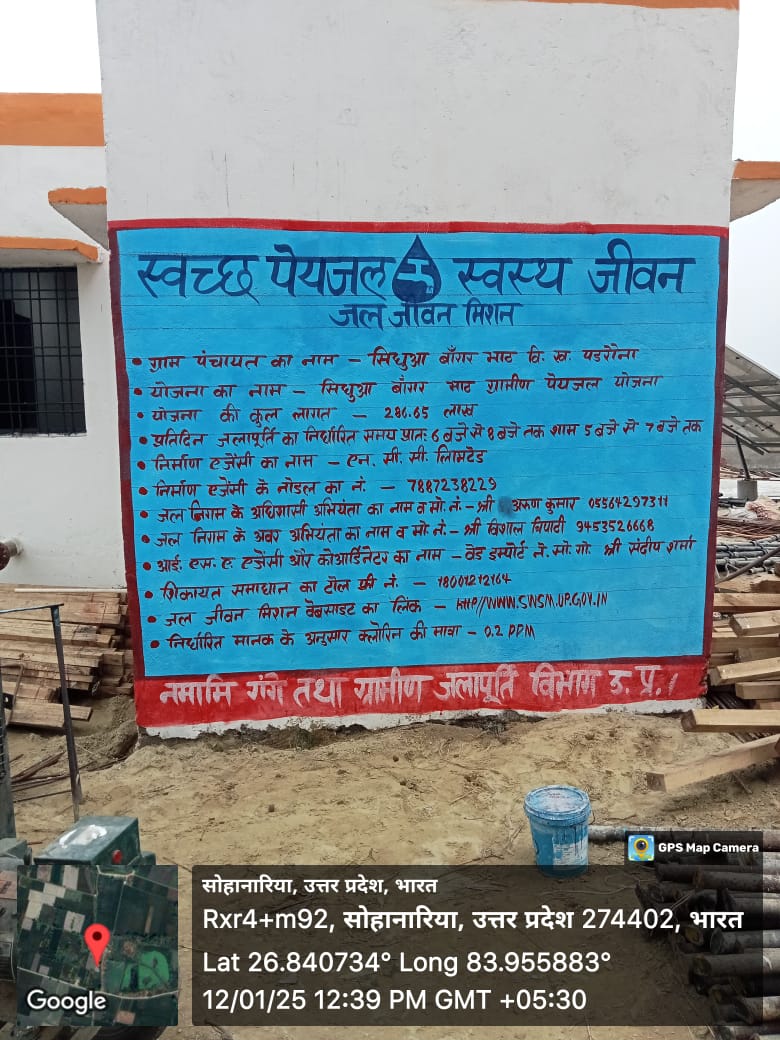 स्वच्छ पेयजल स्वस्थ जीवन
जल जीवन मिशन
• ग्राम पंचायत का नाम – सिधुआ बाँगर माठ वि. ख. पडरौना
• योजना का नाम – सिधुआ बाँगर माठ ग्रामीण पेयजल योजना
• योजना की कुल लागत – 286.65 लाख
• प्रतिदिन जलापूर्ति का निर्धारित समय प्रातः 6 बजे से 8 बजे तक शाम 5 बजे से 7 बजे तक
• निर्माण एजेंसी का नाम – एन. सी. सी. लिमिटेड
• निर्माण एजेंसी के नोडल का नं. – 7887238229
• जल निगम के अधिशासी अभियंता का नाम व मो. नं. – श्री अरुण कुमार 05564297311
• जल निगम के अवर अभियंता का नाम व मो. नं. – श्री विशाल त्रिपाठी 9453526668
• आई. एस. ए. एजेंसी और कोआर्डिनेटर का नाम – वेड इम्पोर्ट ने. मो. गो. श्री संदीप शर्मा
• शिकायत समाधान का टोल फ्री नं. – 18001212164
• जल जीवन मिशन वेबसाइट का लिंक – http//WWW.SWSM.UP.GOV.IN
• निर्धारित मानक के अनुसार क्लोरिन की मात्रा – 0.2 PPM
नमामि गंगे तथा ग्रामीण जलापूर्ति विभाग उ. प्र.।
GPS Map Camera
सोहानारिया, उत्तर प्रदेश, भारत
Rxr4+m92, सोहानारिया, उत्तर प्रदेश 274402, भारत
Lat 26.840734° Long 83.955883°
12/01/25 12:39 PM GMT +05:30
Google